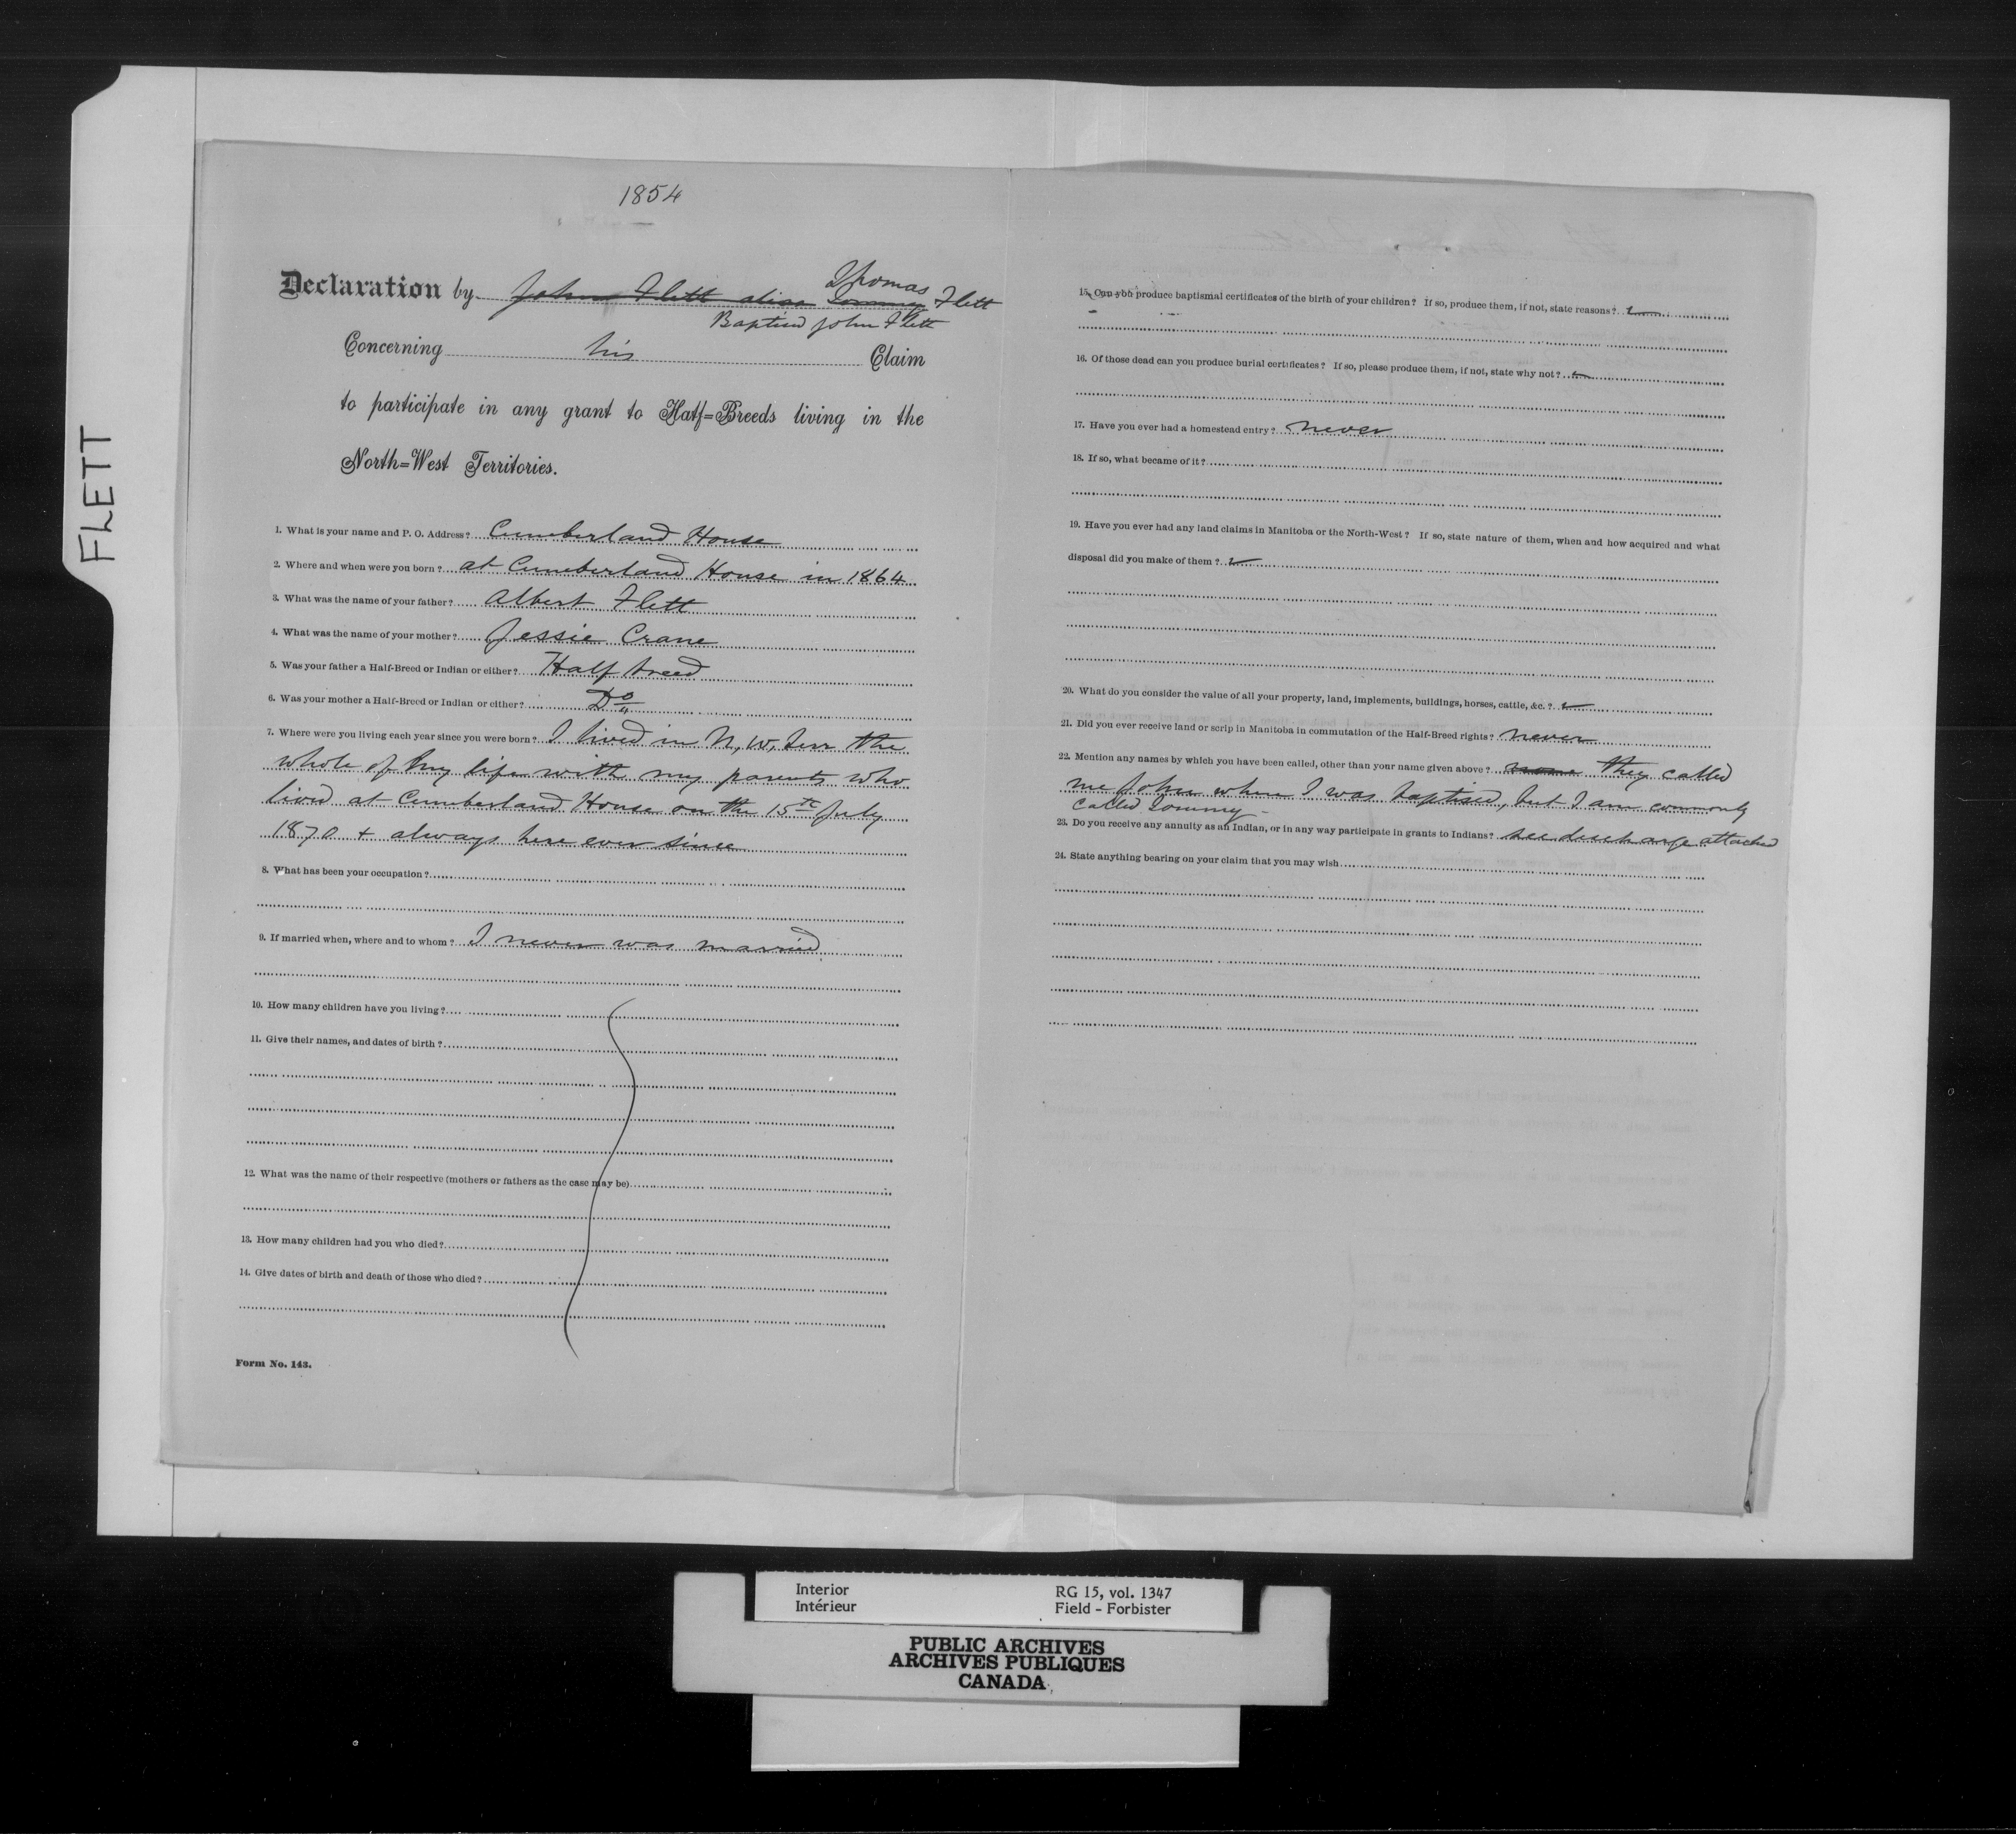 FLETT
1854
Declaration by John Flett alias Tommy Thomas Flett
Baptised John Flett
Concerning his Claim
to participate in any grant to Half=Breeds living in the
North=West Territories.
1. What is your name and P. O. Address? Cumberland House
2. Where and when were you born? at Cumberland House in 1864
3. What was the name of your father? Albert Flett
4. What was the name of your mother? Jessie Crane
5. Was your father a Half-Breed or Indian or either? Half breed
6. Was your mother a Half-Breed or Indian or either? Do
7. Where were you living each year since you were born? I lived in N, W, Terr the
whole of my life with my parents who
lived at Cumberland House on the 15th July
1870 + always here ever since
8. What has been your occupation?
9. If married when, where and to whom? I never was married
10. How many children have you living?
11. Give their names, and dates of birth?
12. What was the name of their respective (mothers or fathers as the case may be)
13. How many children had you who died?
14. Give dates of birth and death of those who died?
Form No. 143.
15. Can you produce baptismal certificates of the birth of your children? If so, produce them, if not, state reasons?
16. Of those dead can you produce burial certificates? If so, please produce them, if not, state why not?
17. Have you ever had a homestead entry? never
18. If so, what became of it?
19. Have you ever had any land claims in Manitoba or the North-West? If so, state nature of them, when and how acquired and what
disposal did you make of them?
20. What do you consider the value of all your property, land, implements, buildings, horses, cattle, &c.?
21. Did you ever receive land or scrip in Manitoba in commutation of the Half-Breed rights? never
22. Mention any names by which you have been called, other than your name given above? none they called
me John when I was baptised, but I am commonly
called Tommy -
23. Do you receive any annuity as an Indian, or in any way participate in grants to Indians? see discharge attached
24. State anything bearing on your claim that you may wish
Interior RG 15, vol. 1347
Intérieur Field - Forbister
PUBLIC ARCHIVES
ARCHIVES PUBLIQUES
CANADA